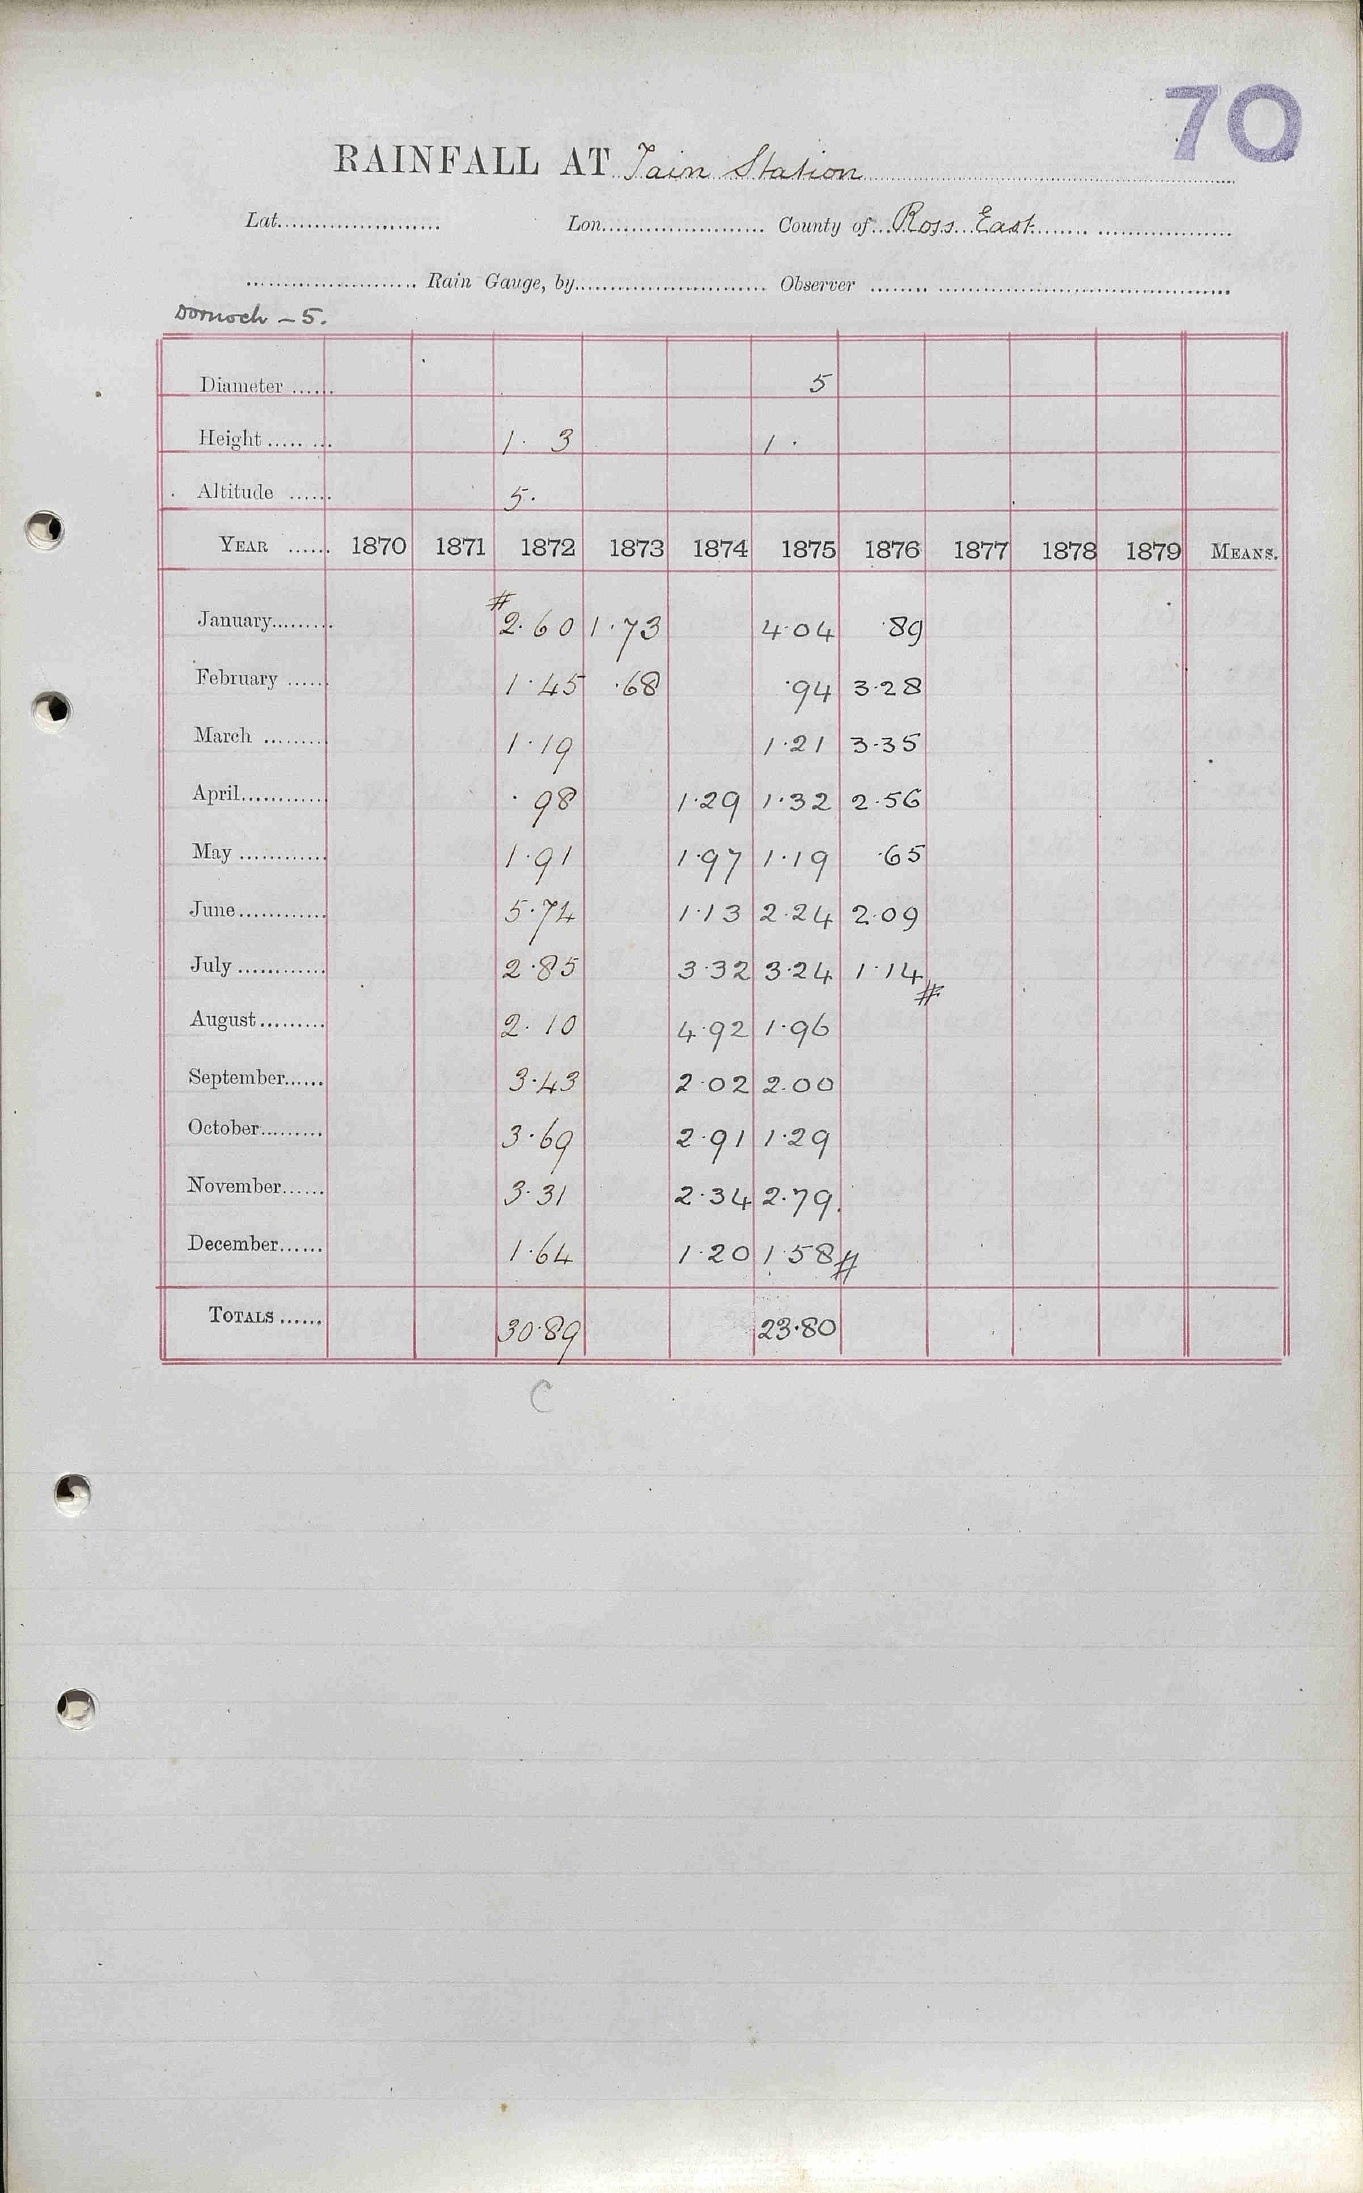 70
RAINFALL AT Tain Station
Lat. Lon. County of Ross East
Rain Gauge, by Observer
Dornoch - 5.
Diameter 5
Height 1. 3 1.
Altitude 5.
YEAR 1870 1871 1872 1873 1874 1875 1876 1877 1878 1879 MEANS.
January # 2.60 1.73 4.04 .89
February 1.45 .68 .94 3.28
March 1.19 1.21 3.35
April .98 1.29 1.32 2.56
May 1.91 1.97 1.19 .65
June 5.74 1.13 2.24 2.09
July 2.85 3.32 3.24 1.14 #
August 2.10 4.92 1.96
September 3.43 2.02 2.00
October 3.69 2.91 1.29
November 3.31 2.34 2.79
December 1.64 1.20 1.58 #
TOTALS 30.89 23.80
C